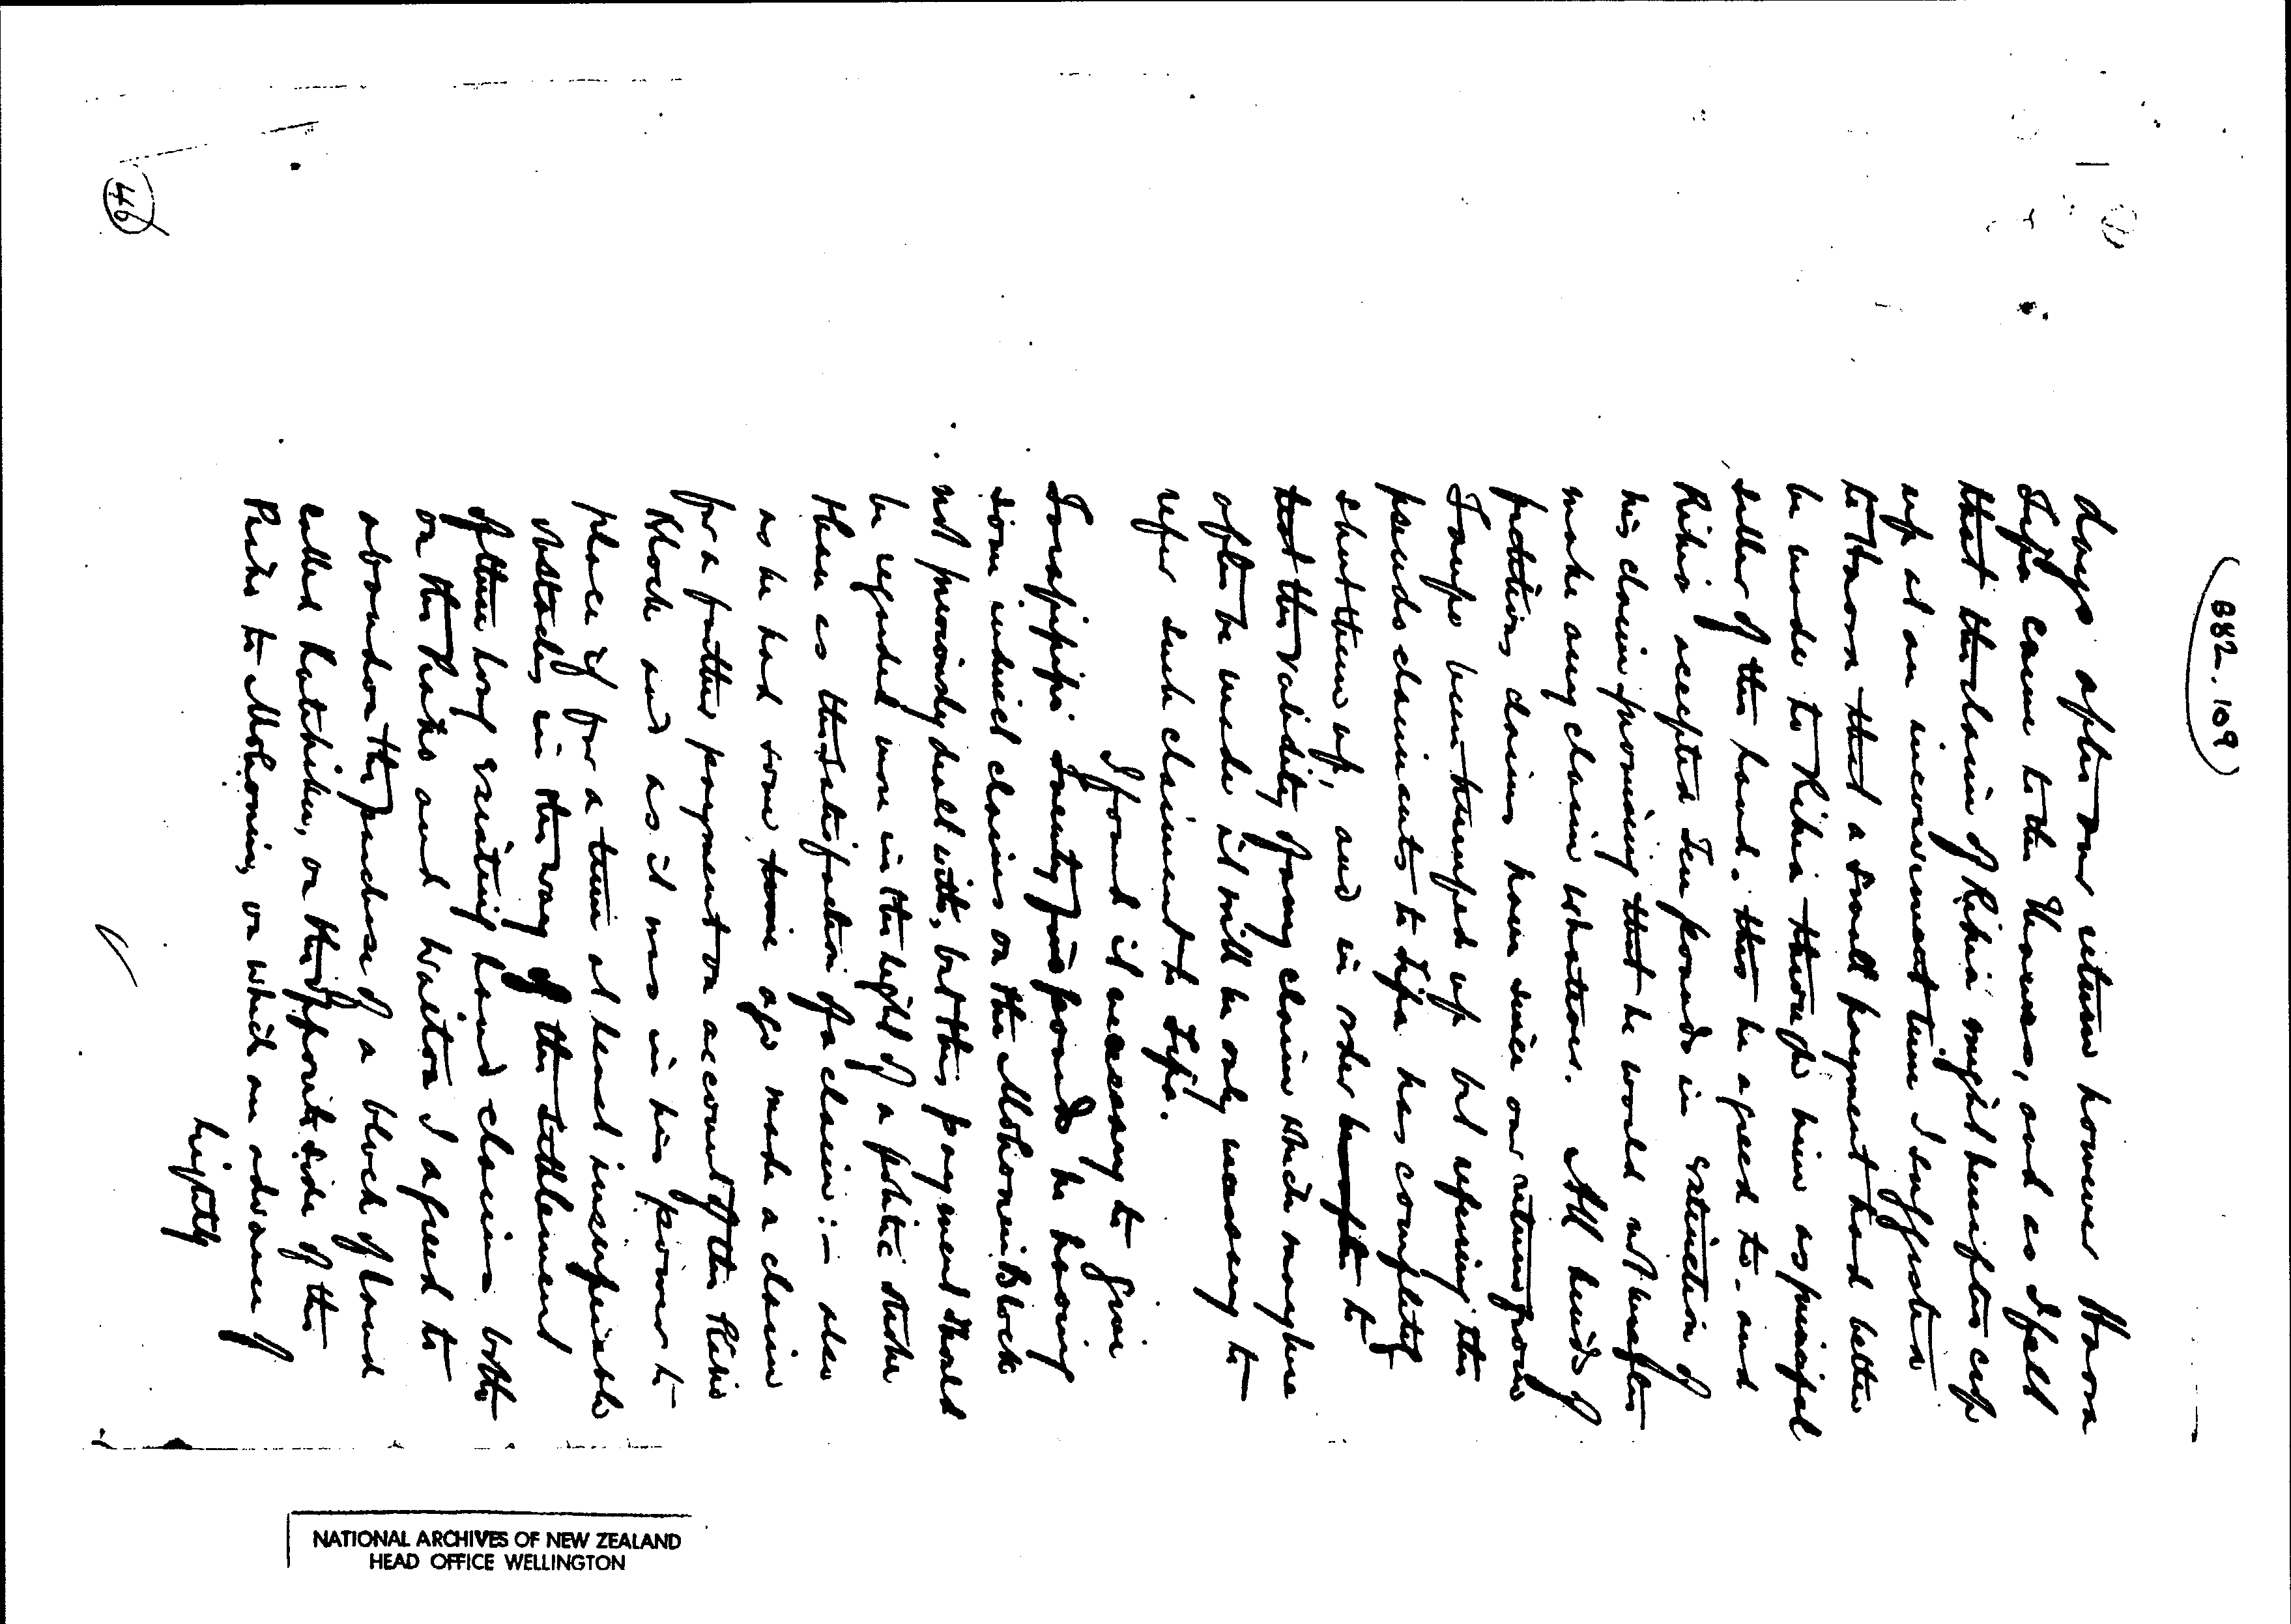 B82. 109
days after our return however Haora
Tipa came to the Thames, and as I felt
that the claim of Rihia might hereafter crop
up at an inconvenient time I suggested
to Haora that a small payment had better
be made to Rihia through him as principal
seller of the land. this he agreed to. and
Rihia accepted Ten pounds in extinction of
his claim promising that he would not hereafter
make any claim whatever. All kinds of
fictitious claims have since our return from
Taupo been trumped up but referring the
pseudo claimants to Tipa has completely
shut them up, and in order to
test the validity of any claim which may here
after be made it will be only necessary to
refer such claimant to Tipa.
I found it necessary to give
Taraipipi Twenty five pounds he having
some indirect claims on the Mohonui Block
not previously dealt with, but this payment should
be regarded more in the light of a politic stroke
than as the satisfaction of a claim:- also
as he had some time ago made a claim
for a further payment on account of the
Block and as it was in his power to
place if for a time at least insuperable
obstacles in the way of the settlement
of these long existing land claims both
on the Piako and Waitoa I agreed to
abandon the purchase of a block of land
called on the opposite side of the
Piako to Mohonui, on which an advance of
Eighty
46
NATIONAL ARCHIVES OF NEW ZEALAND
HEAD OFFICE WELLINGTON